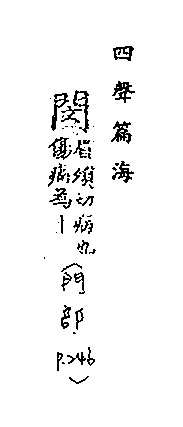 四聲篇海
閔眉殞切病也
傷病為｜
(門部
P.246)